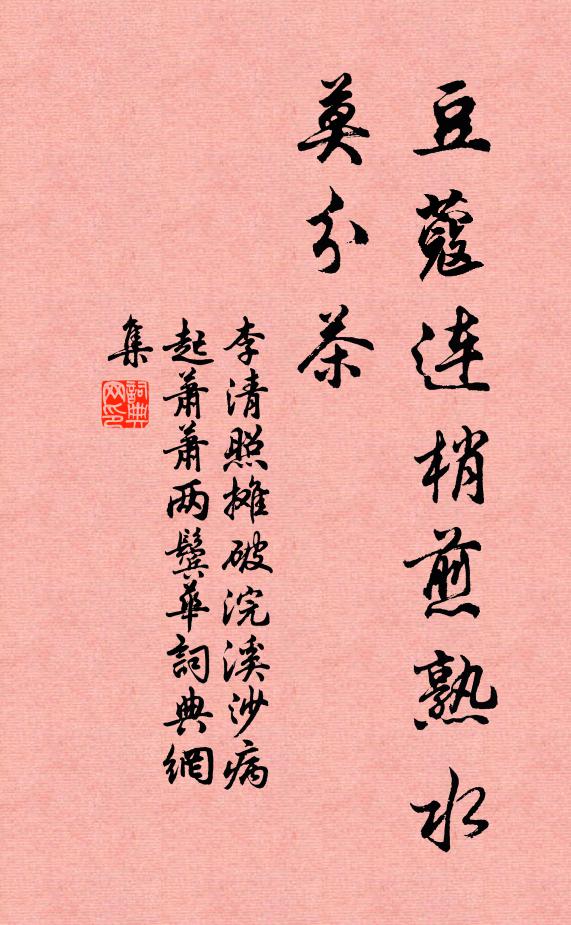 豆蔻连梢煎熟水
莫分茶
李清照摊破浣溪沙病
起萧萧两鬓华詞典網
集
詞典
网印